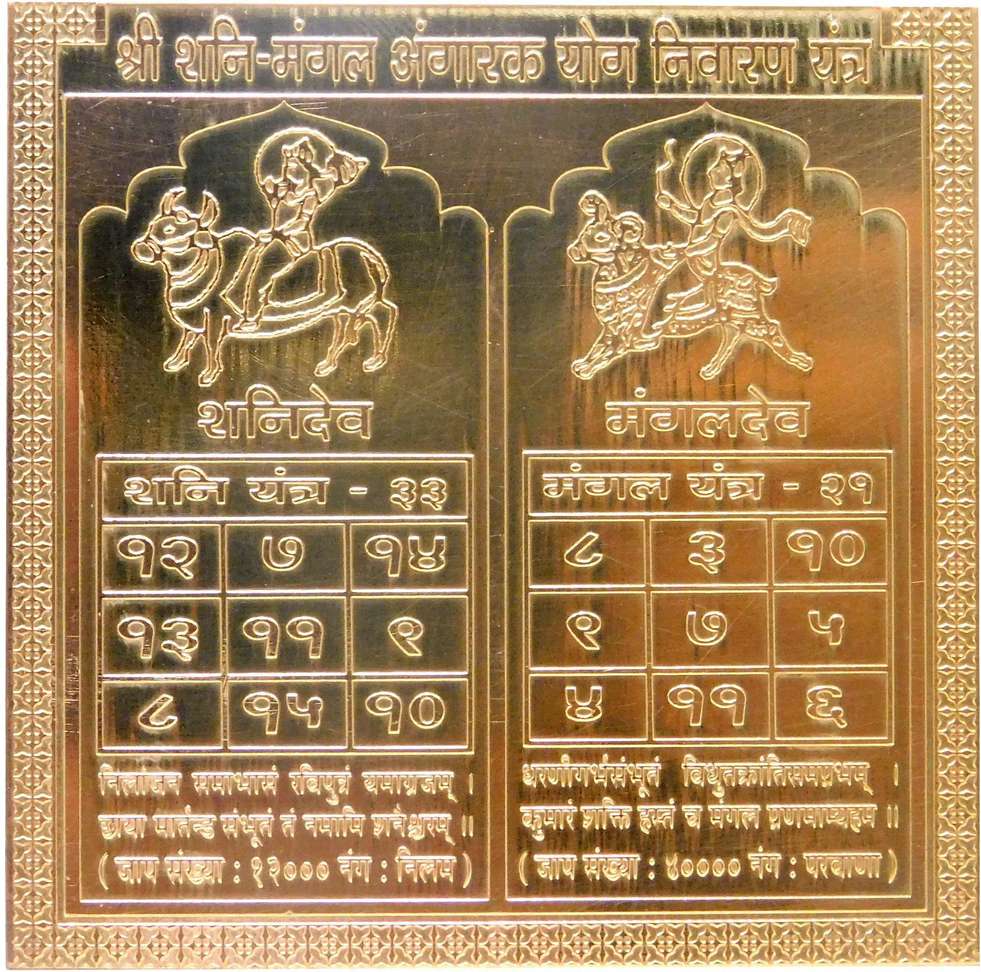 श्री शनि-मंगल अंगारक योग निवारण यंत्र
शनिदेव
शनि यंत्र - ३३
१२ ७ १४
१३ ११ ९
८ १५ १०
निलांजन समाभासं रविपुत्रं यमाग्रजम् ।
छाया मार्तन्ड संभूतं तं नमामि शनैश्चरम् ॥
( जाप संख्या : १२००० नंग : निलम )
मंगलदेव
मंगल यंत्र - २१
८ ३ १०
९ ७ ५
४ ११ ६
धरणीगर्भसंभूतं विधुतक्रांतिसमप्रभम् ।
कुमारं शक्ति हस्तं च मंगल प्रणमाम्यहम ॥
( जाप संख्या : ४०००० नंग : परवाणा )